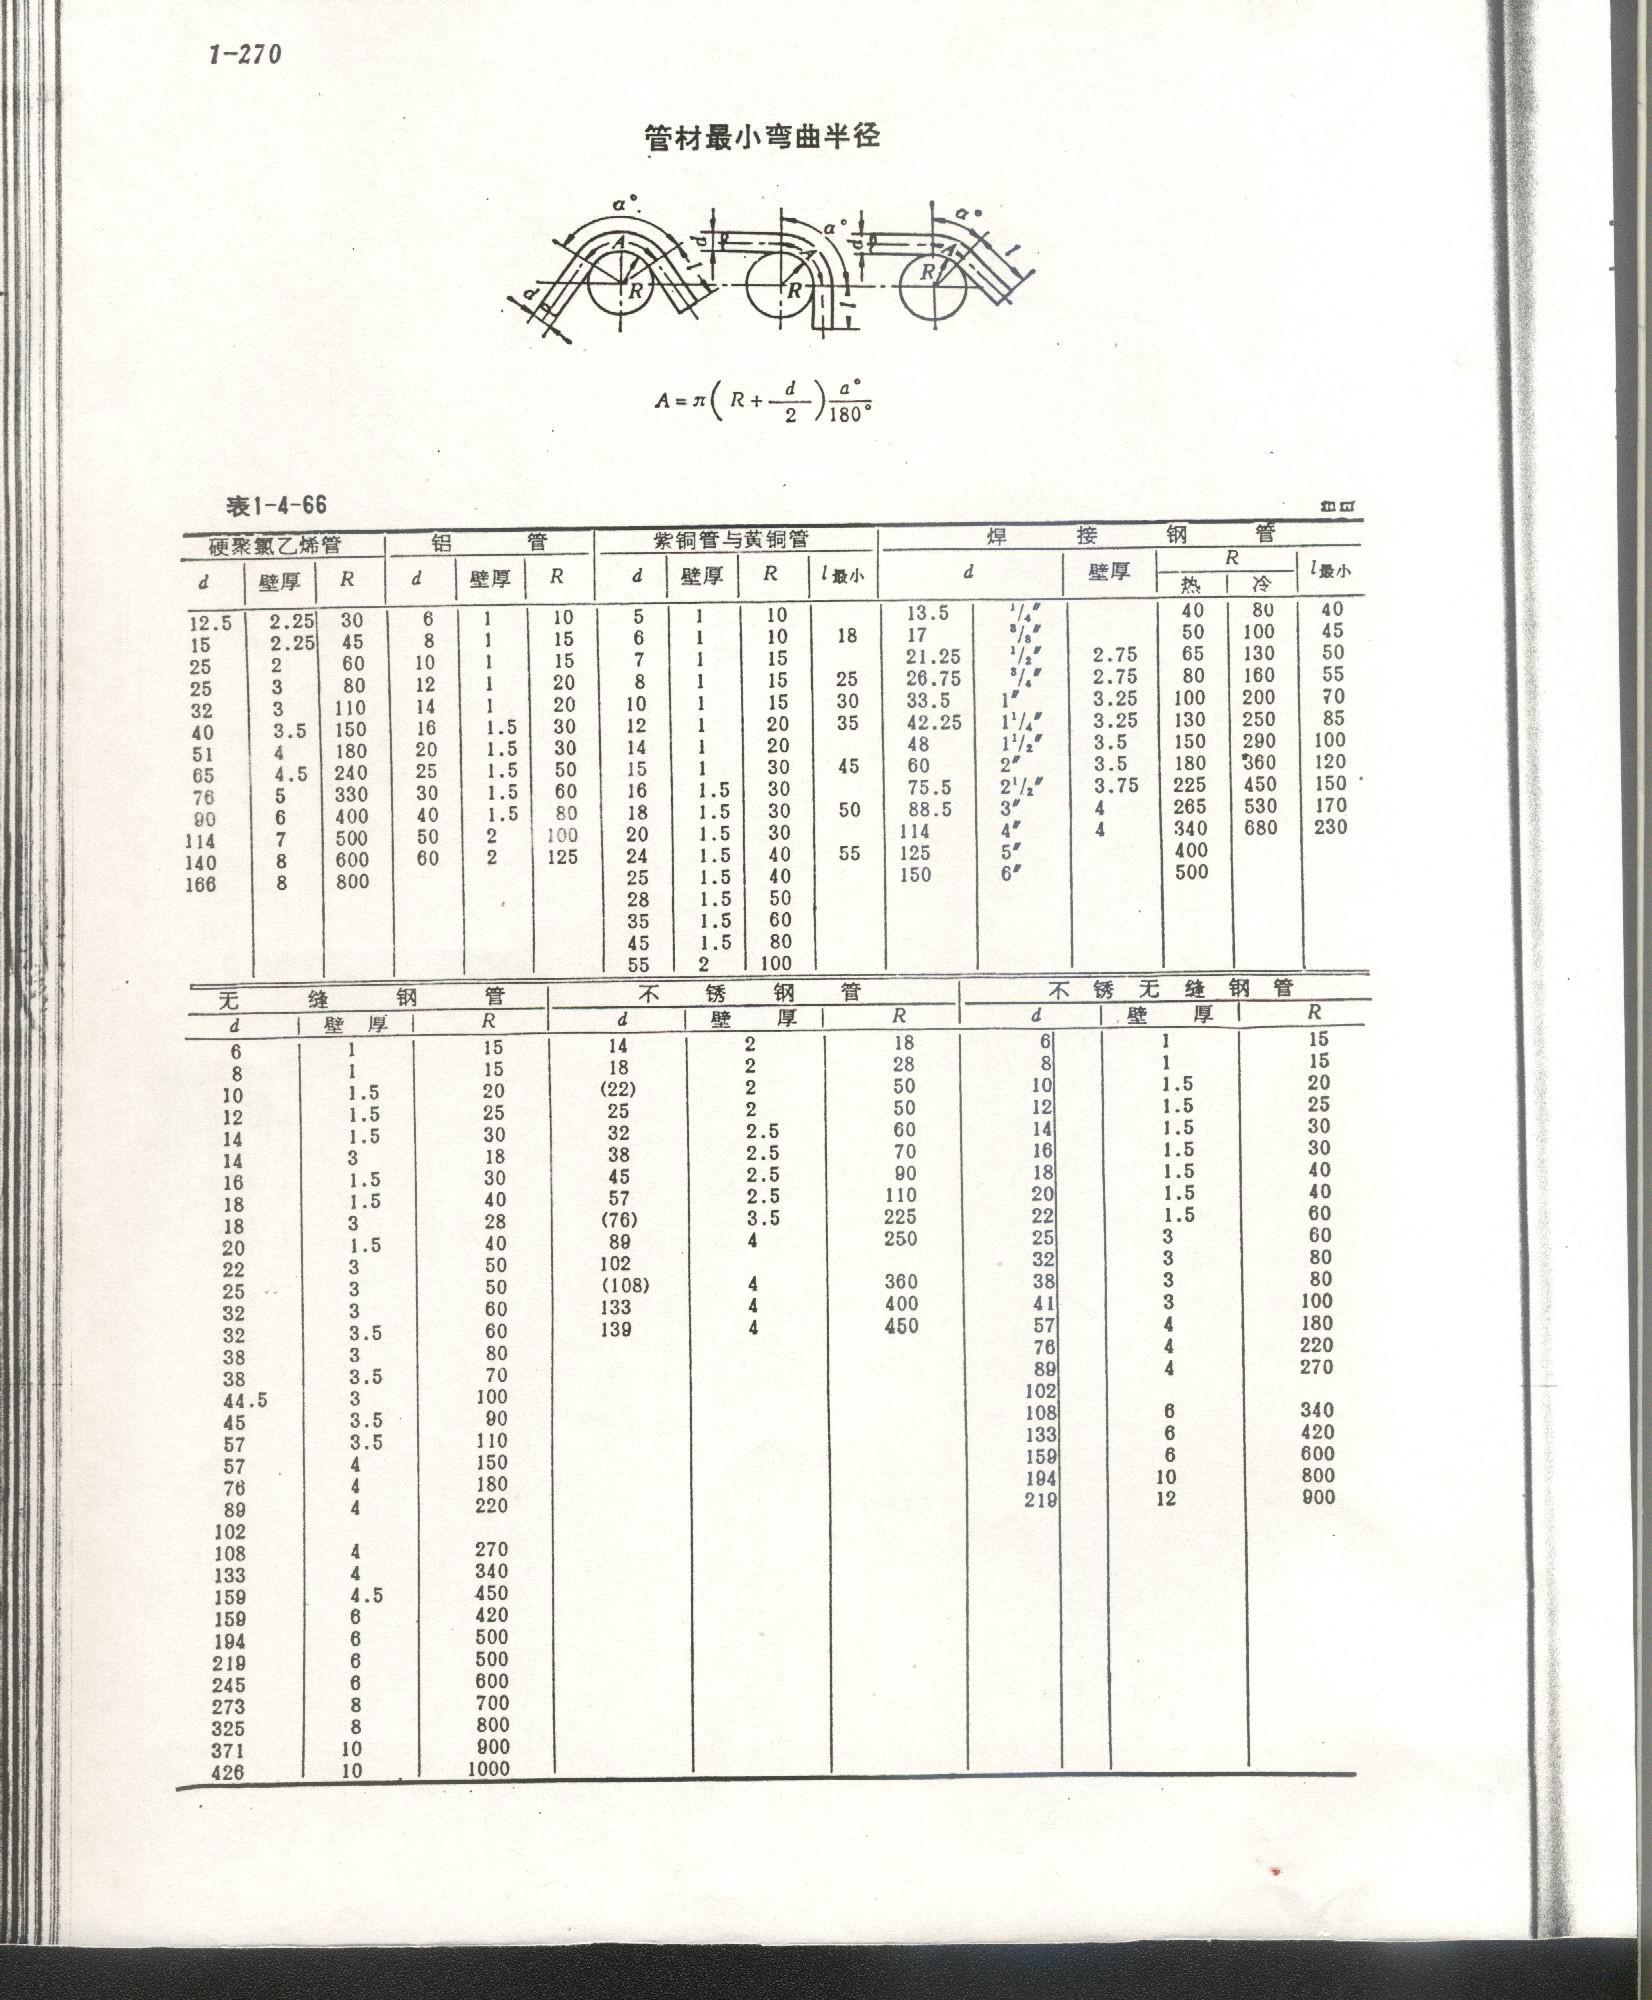 1-270
管材最小弯曲半径
α° α° α°
A A A
d d d
R R R
l l l
A=π(R+d/2)a°/180°
表1-4-66 mm
硬聚氯乙烯管 铝管 紫铜管与黄铜管 焊接钢管
d 壁厚 R d 壁厚 R d 壁厚 R l最小 d 壁厚 R l最小
热 冷
12.5 2.25 30 6 1 10 5 1 10 13.5 1/4″ 40 80 40
15 2.25 45 8 1 15 6 1 10 18 17 3/8″ 50 100 45
25 2 60 10 1 15 7 1 15 21.25 1/2″ 2.75 65 130 50
25 3 80 12 1 20 8 1 15 25 26.75 3/4″ 2.75 80 160 55
32 3 110 14 1 20 10 1 15 30 33.5 1″ 3.25 100 200 70
40 3.5 150 16 1.5 30 12 1 20 35 42.25 1 1/4″ 3.25 130 250 85
51 4 180 20 1.5 30 14 1 20 48 1 1/2″ 3.5 150 290 100
65 4.5 240 25 1.5 50 15 1 30 45 60 2″ 3.5 180 360 120
76 5 330 30 1.5 60 16 1.5 30 75.5 2 1/2″ 3.75 225 450 150
90 6 400 40 1.5 80 18 1.5 30 50 88.5 3″ 4 265 530 170
114 7 500 50 2 100 20 1.5 30 114 4″ 4 340 680 230
140 8 600 60 2 125 24 1.5 40 55 125 5″ 400
166 8 800 25 1.5 40 150 6″ 500
28 1.5 50
35 1.5 60
45 1.5 80
55 2 100
无缝钢管 不锈钢管 不锈无缝钢管
d 壁厚 R d 壁厚 R d 壁厚 R
6 1 15 14 2 18 6 1 15
8 1 15 18 2 28 8 1 15
10 1.5 20 (22) 2 50 10 1.5 20
12 1.5 25 25 2 50 12 1.5 25
14 1.5 30 32 2.5 60 14 1.5 30
14 3 18 38 2.5 70 16 1.5 30
16 1.5 30 45 2.5 90 18 1.5 40
18 1.5 40 57 2.5 110 20 1.5 40
18 3 28 (76) 3.5 225 22 1.5 60
20 1.5 40 89 4 250 25 3 60
22 3 50 102 32 3 80
25 3 50 (108) 4 360 38 3 80
32 3 60 133 4 400 41 3 100
32 3.5 60 139 4 450 57 4 180
38 3 80 76 4 220
38 3.5 70 89 4 270
44.5 3 100 102
45 3.5 90 108 6 340
57 3.5 110 133 6 420
57 4 150 159 6 600
76 4 180 194 10 800
89 4 220 219 12 900
102
108 4 270
133 4 340
159 4.5 450
159 6 420
194 6 500
219 6 500
245 6 600
273 8 700
325 8 800
371 10 900
426 10 1000